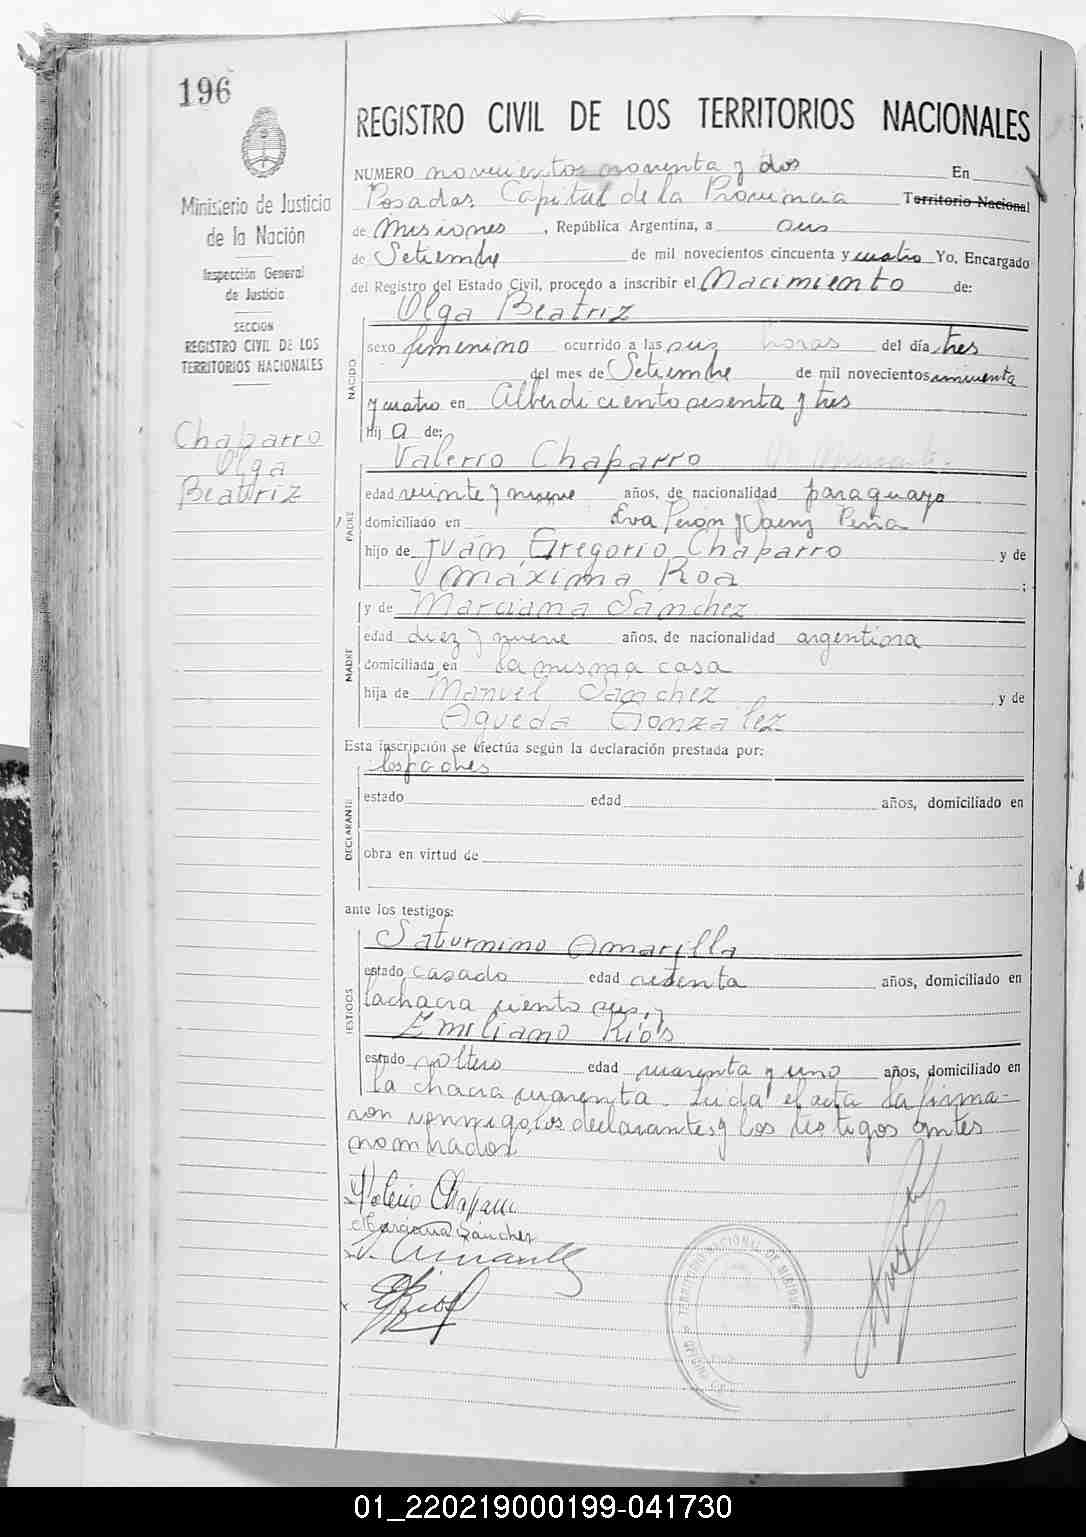 196
REGISTRO CIVIL DE LOS TERRITORIOS NACIONALES
Ministerio de Justicia
de la Nación
Inspección General
de Justicia
SECCION
REGISTRO CIVIL DE LOS
TERRITORIOS NACIONALES
Chaparro
Olga
Beatriz
NUMERO novecientos noventa y dos En
Posadas, Capital de la Provincia Territorio Nacional
de Misiones, República Argentina, a seis
de Setiembre de mil novecientos cincuenta y cuatro Yo, Encargado
del Registro del Estado Civil, procedo a inscribir el Nacimiento de:
Olga Beatriz
NACIDO
sexo femenino ocurrido a las seis horas del día tres
del mes de Setiembre de mil novecientos cincuenta
y cuatro en Alberdi ciento sesenta y tres
hija de:
Valerio Chaparro
PADRE
edad veinte y nueve años, de nacionalidad paraguayo
domiciliado en Eva Perón y Saenz Peña
hijo de Juán Gregorio Chaparro y de
Máxima Roa ;
y de Marciana Sánchez
MADRE
edad diez y nueve años, de nacionalidad argentina
domiciliada en la misma casa
hija de Manuel Sánchez, y de
Agueda González
Esta inscripción se efectúa según la declaración prestada por:
los padres
DECLARANTE
estado edad años, domiciliado en
obra en virtud de
ante los testigos:
Saturnino Amarilla
TESTIGOS
estado casado edad setenta años, domiciliado en
la chacra ciento seis, y
Emiliano Ríos
estado soltero edad cuarenta y uno años, domiciliado en
la chacra cuarenta. Leida el acta la firma-
ron conmigo, los declarantes y los testigos antes
nombrados.
Valerio Chaparro
Marciana Sánchez
E Rios
TERRITORIO NACIONAL DE MISIONES
01_220219000199-041730